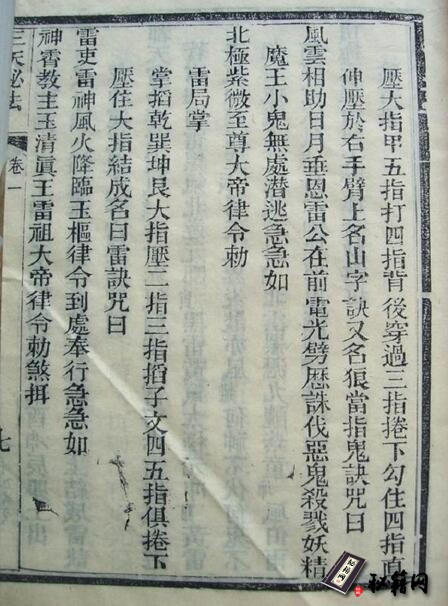 壓大指甲五指打四指背後穿過三指捲下勾住四指直
伸壓於右手臂上名山字訣又名狼當指鬼訣咒曰
風雲相助日月垂恩雷公在前電光劈歷誅伐惡鬼殺戮妖精
魔王小鬼無處潛逃急急如
北極紫微至尊大帝律令勅
雷局掌
掌搯乾巽坤艮大指壓二指三指搯子文四五指俱捲下
壓住大指結成名曰雷訣咒曰
雷吏雷神風火降臨玉樞律令到處奉行急急如
神霄教主玉清眞王雷祖大帝律令勅煞㨘
三天秘法
卷一
七
秘籍网